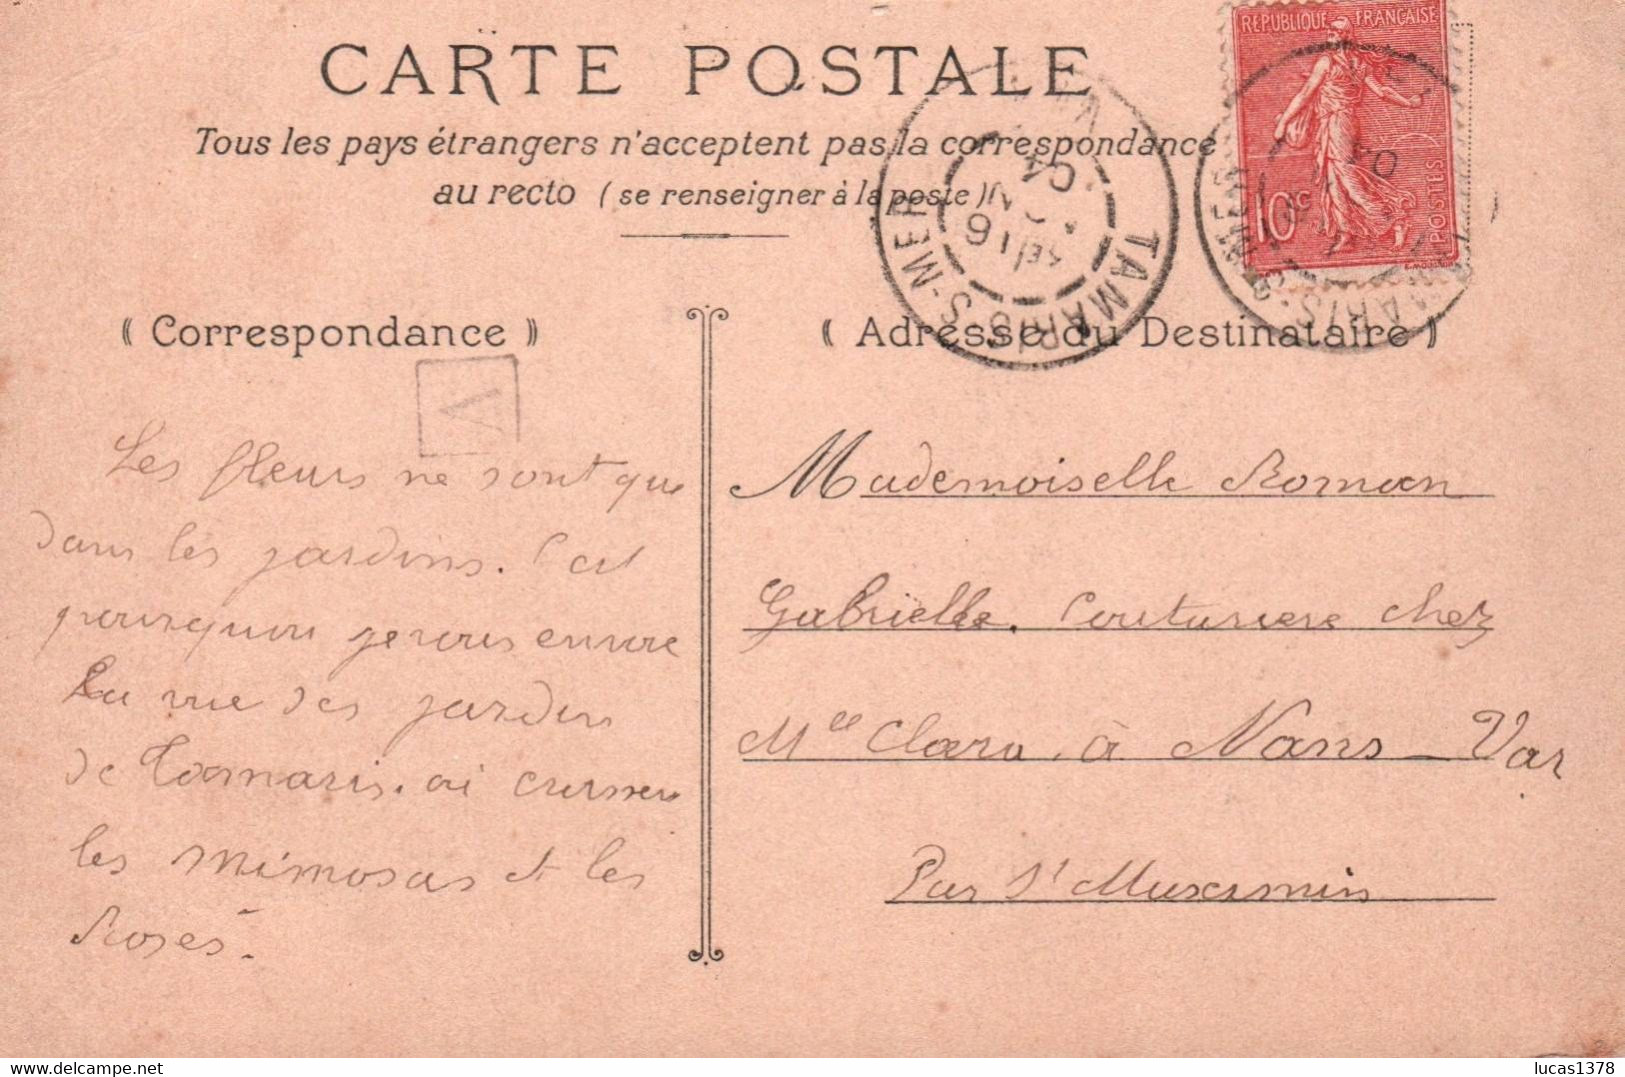 CARTE POSTALE
Tous les pays étrangers n'acceptent pas la correspondance
au recto (se renseigner à la poste)
RÉPUBLIQUE FRANÇAISE
10c
POSTES
TAMARIS-S-MER
16
04
« Correspondance »
« Adresse du Destinataire »
A
Les fleurs ne sont que
dans les jardins. C'est
pourquoi je vous envoie
La vue des jardins
de Tamaris. où
les mimosas et les
Roses.
Mademoiselle Roman
Gabrielle. Couturiere chez
Mlle Clara à Nans – Var
Par St Maxemin
lucas1378